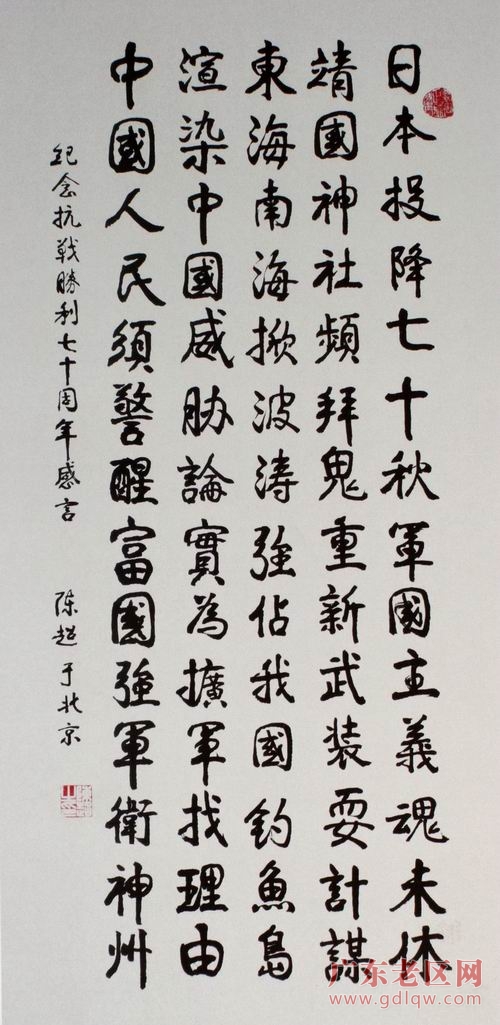 日本投降七十秋軍國主義魂未休
靖國神社頻拜鬼重新武装耍計謀
東海南海掀波涛强佔我國釣魚島
渲染中國威胁論實為擴軍找理由
中國人民須警醒富國强軍衛神州
纪念抗戰勝利七十周年感言 陈超于北京
广东老区网
www.gdlqw.com